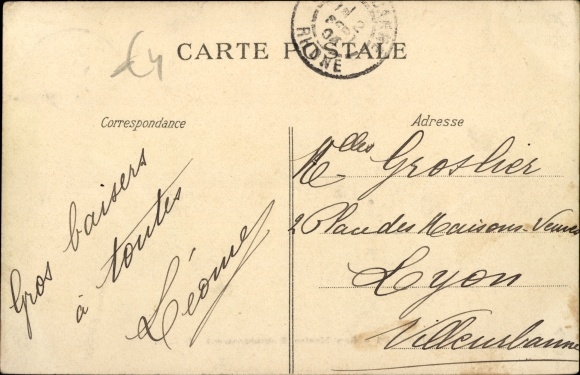 CARTE POSTALE
RHONE
£4
Correspondance
Adresse
Gros baisers
à toutes
Léome
Mlles Groslier
2 Place des Maisons Neuves
Lyon
Villeurbanne